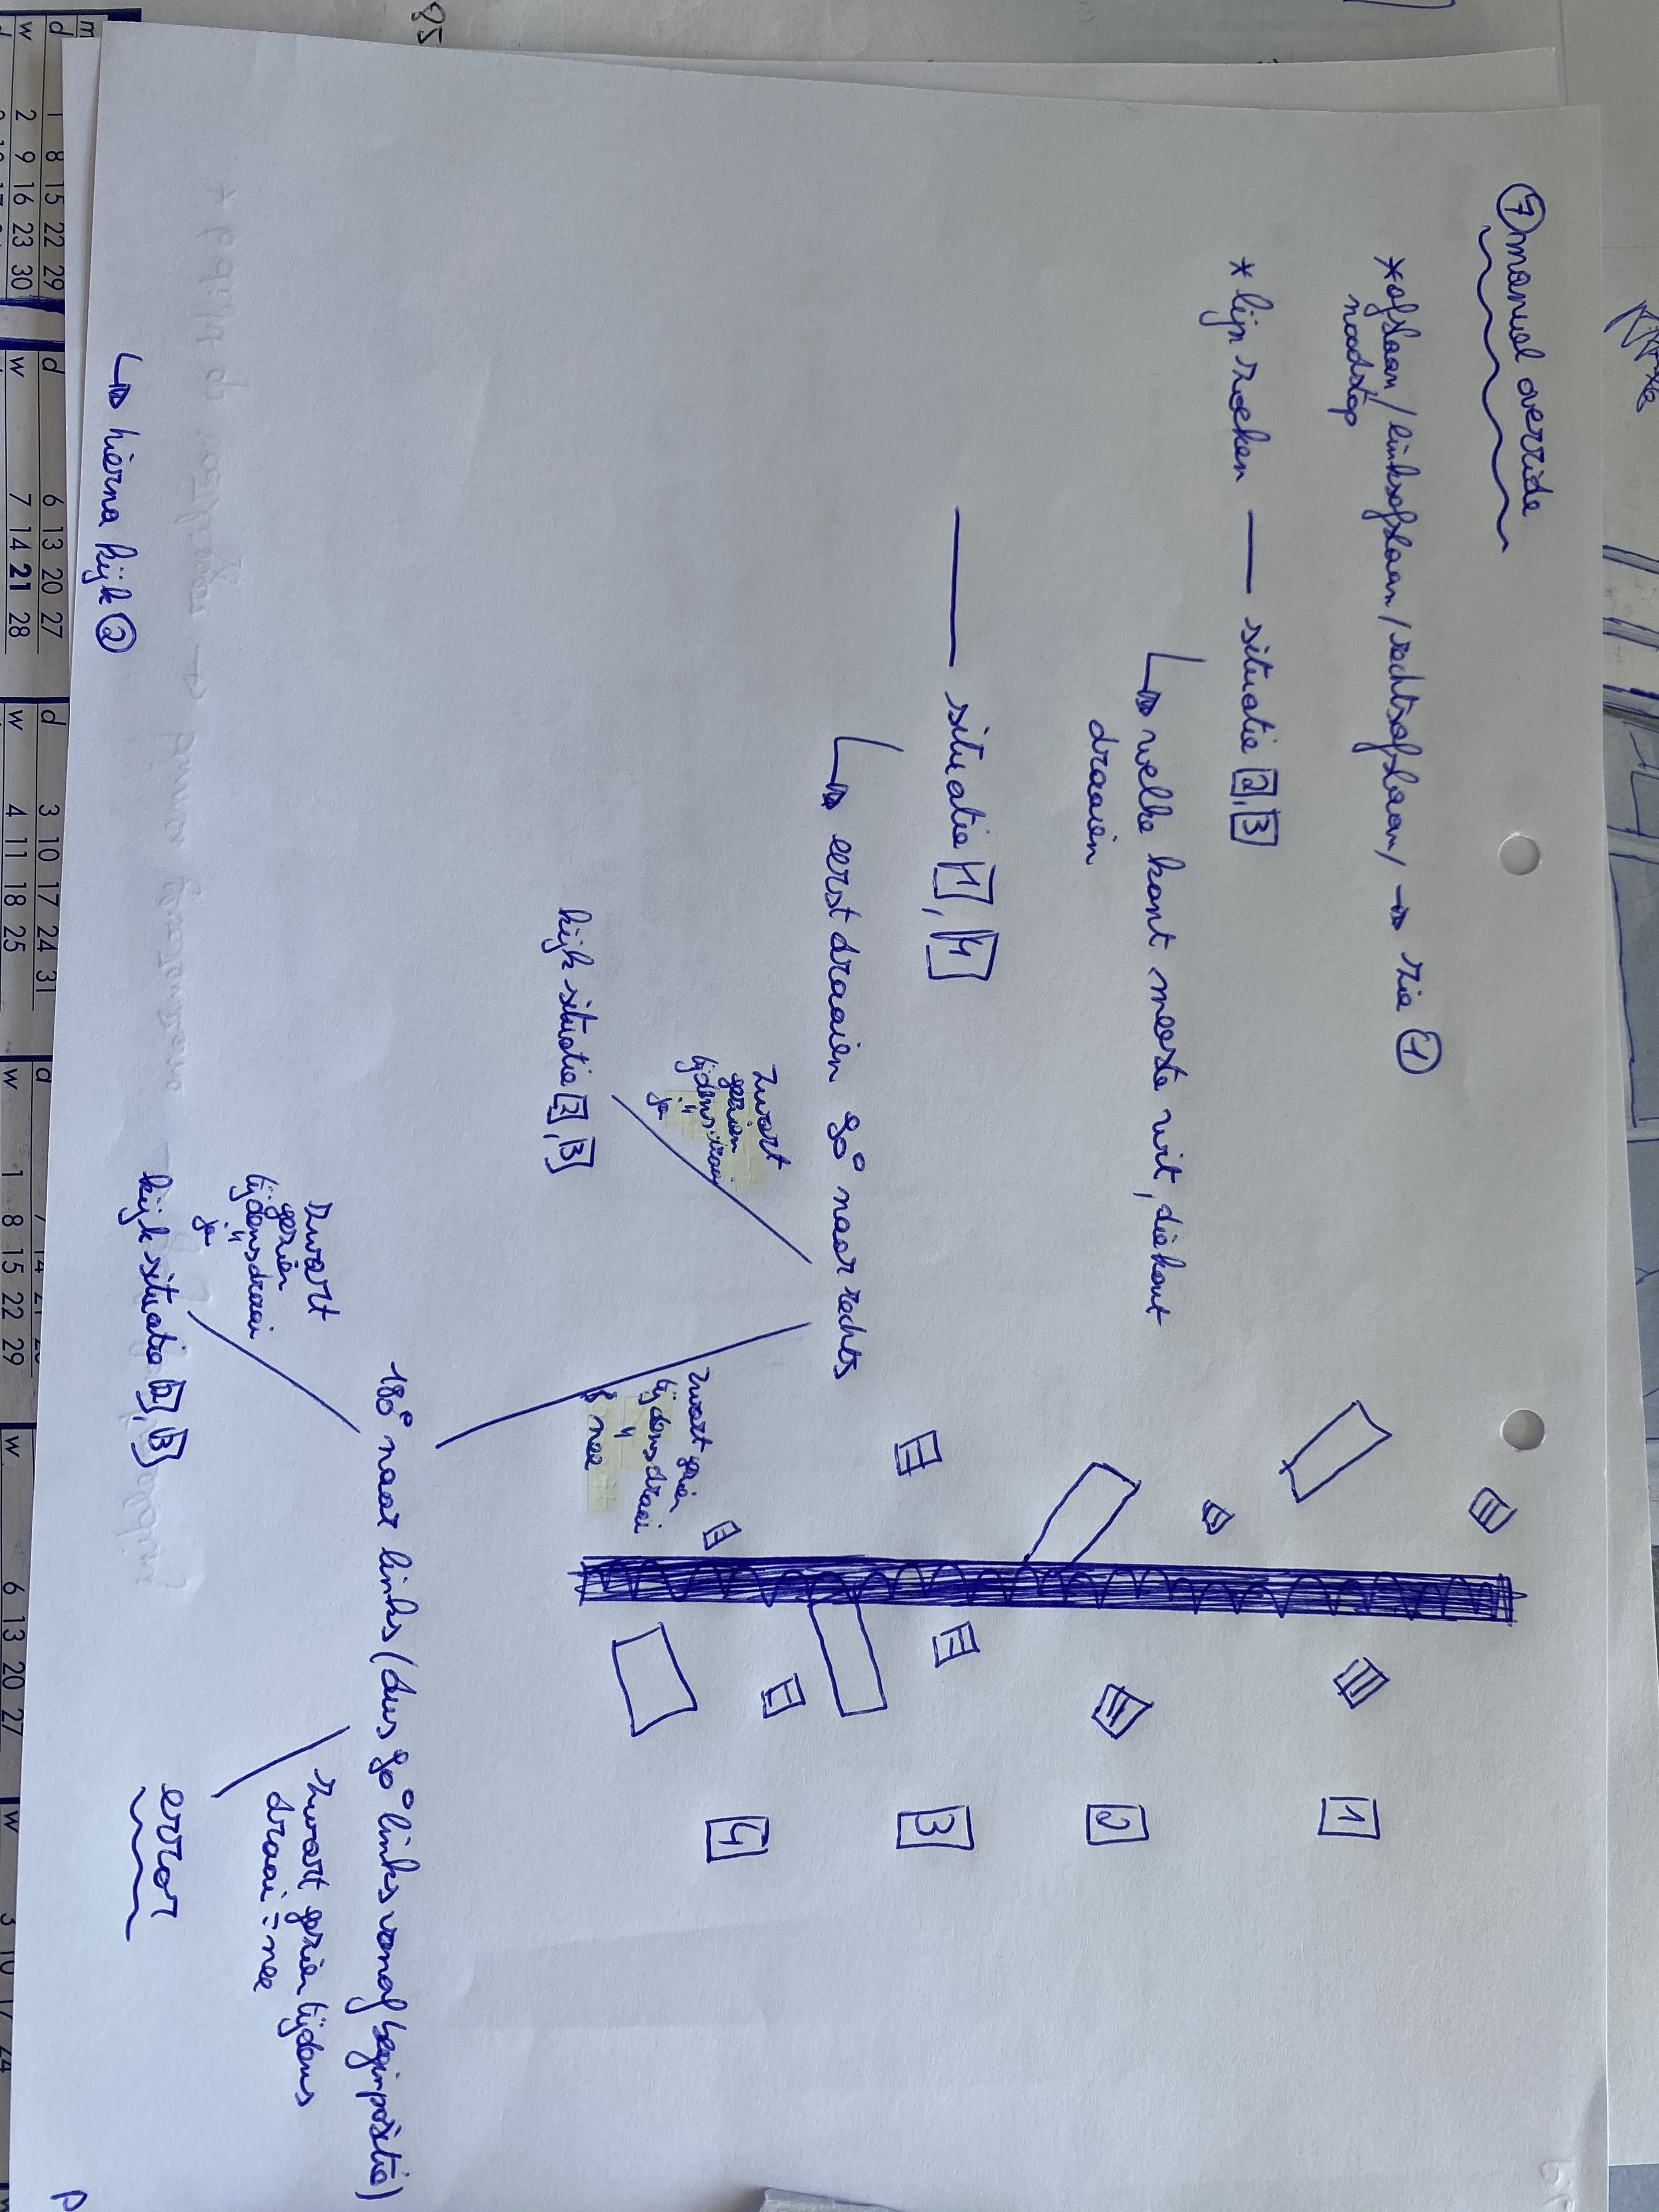 ⑦ manual override
* afslaan / linksafslaan / rechtsafslaan / → zie ①
noodstop
* lijn zoeken — situatie 2, 3
↳ welke kant meeste wit, die kant
draaien
— situatie 1, 4
↳ eerst draaien 90° naar rechts
zwart
gezien
tijdens draai
ja
kijk situatie 2, 3
zwart gezien
tijdens draai
nee
180° naar links (dus 90° links vanaf beginpositie)
zwart
gezien
tijdens draai
ja
kijk situatie 2, 3
zwart gezien tijdens
draai = nee
error
↳ hierna kijk ②
1
2
3
4
85
d 1 8 15 22 29
w 2 9 16 23 30
d 6 13 20 27
w 7 14 21 28
d 3 10 17 24 31
w 4 11 18 25
w 1 8 15 22 29
w 6 13 20 27
w 3 10 17 24